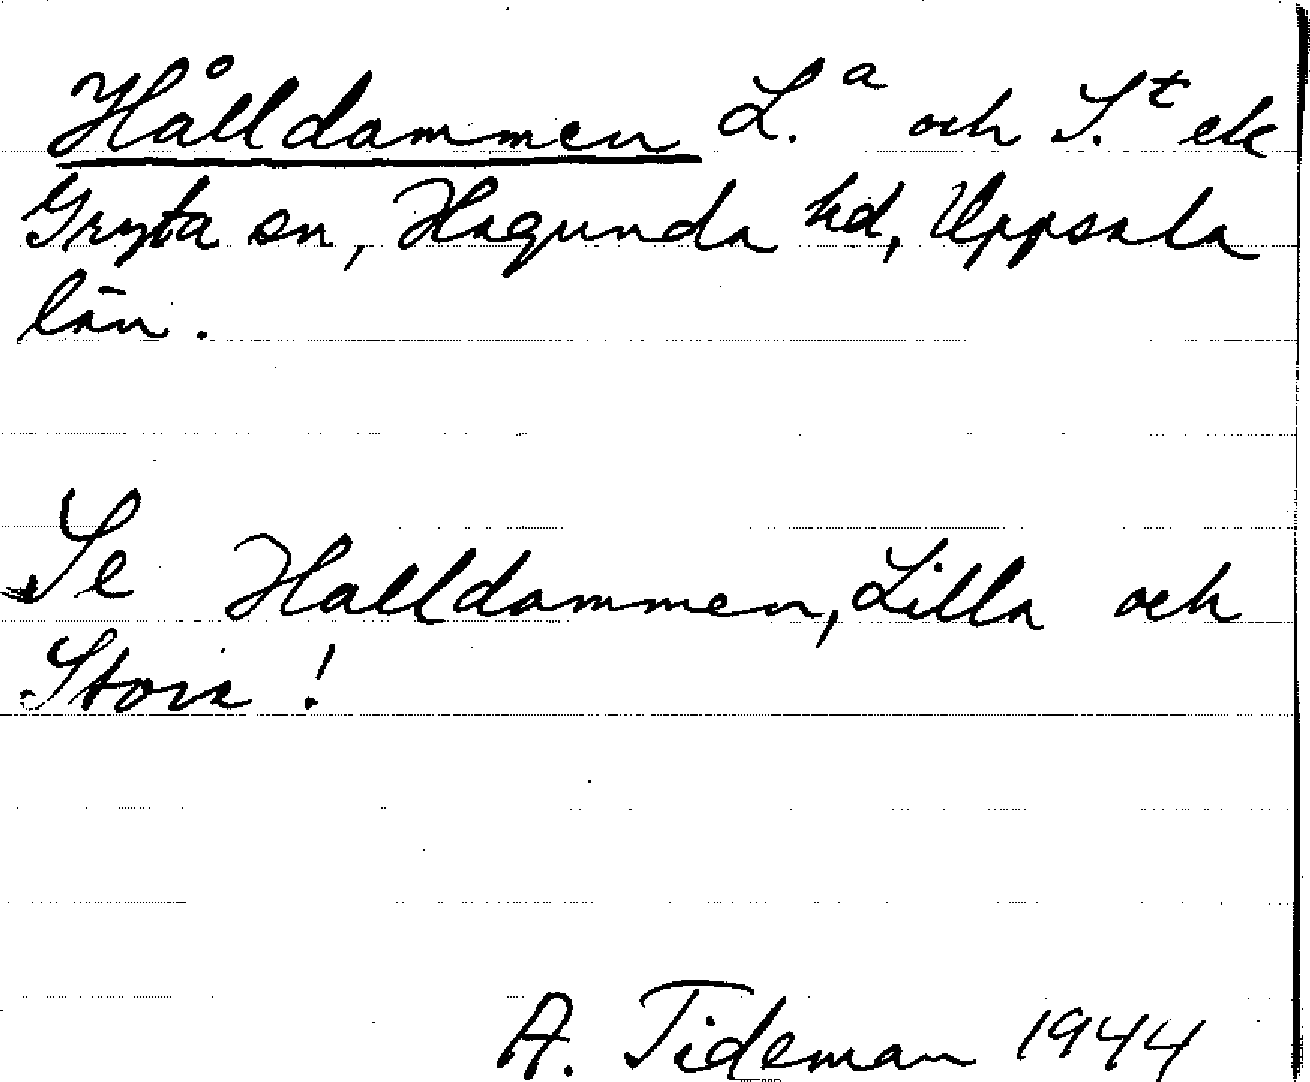 Hålldammen L.a och S.t ek
Gryta sn, Hagunda hd, Uppsala
län.
Se Halldammen, Lilla och
Stora!
A. Tideman 1944